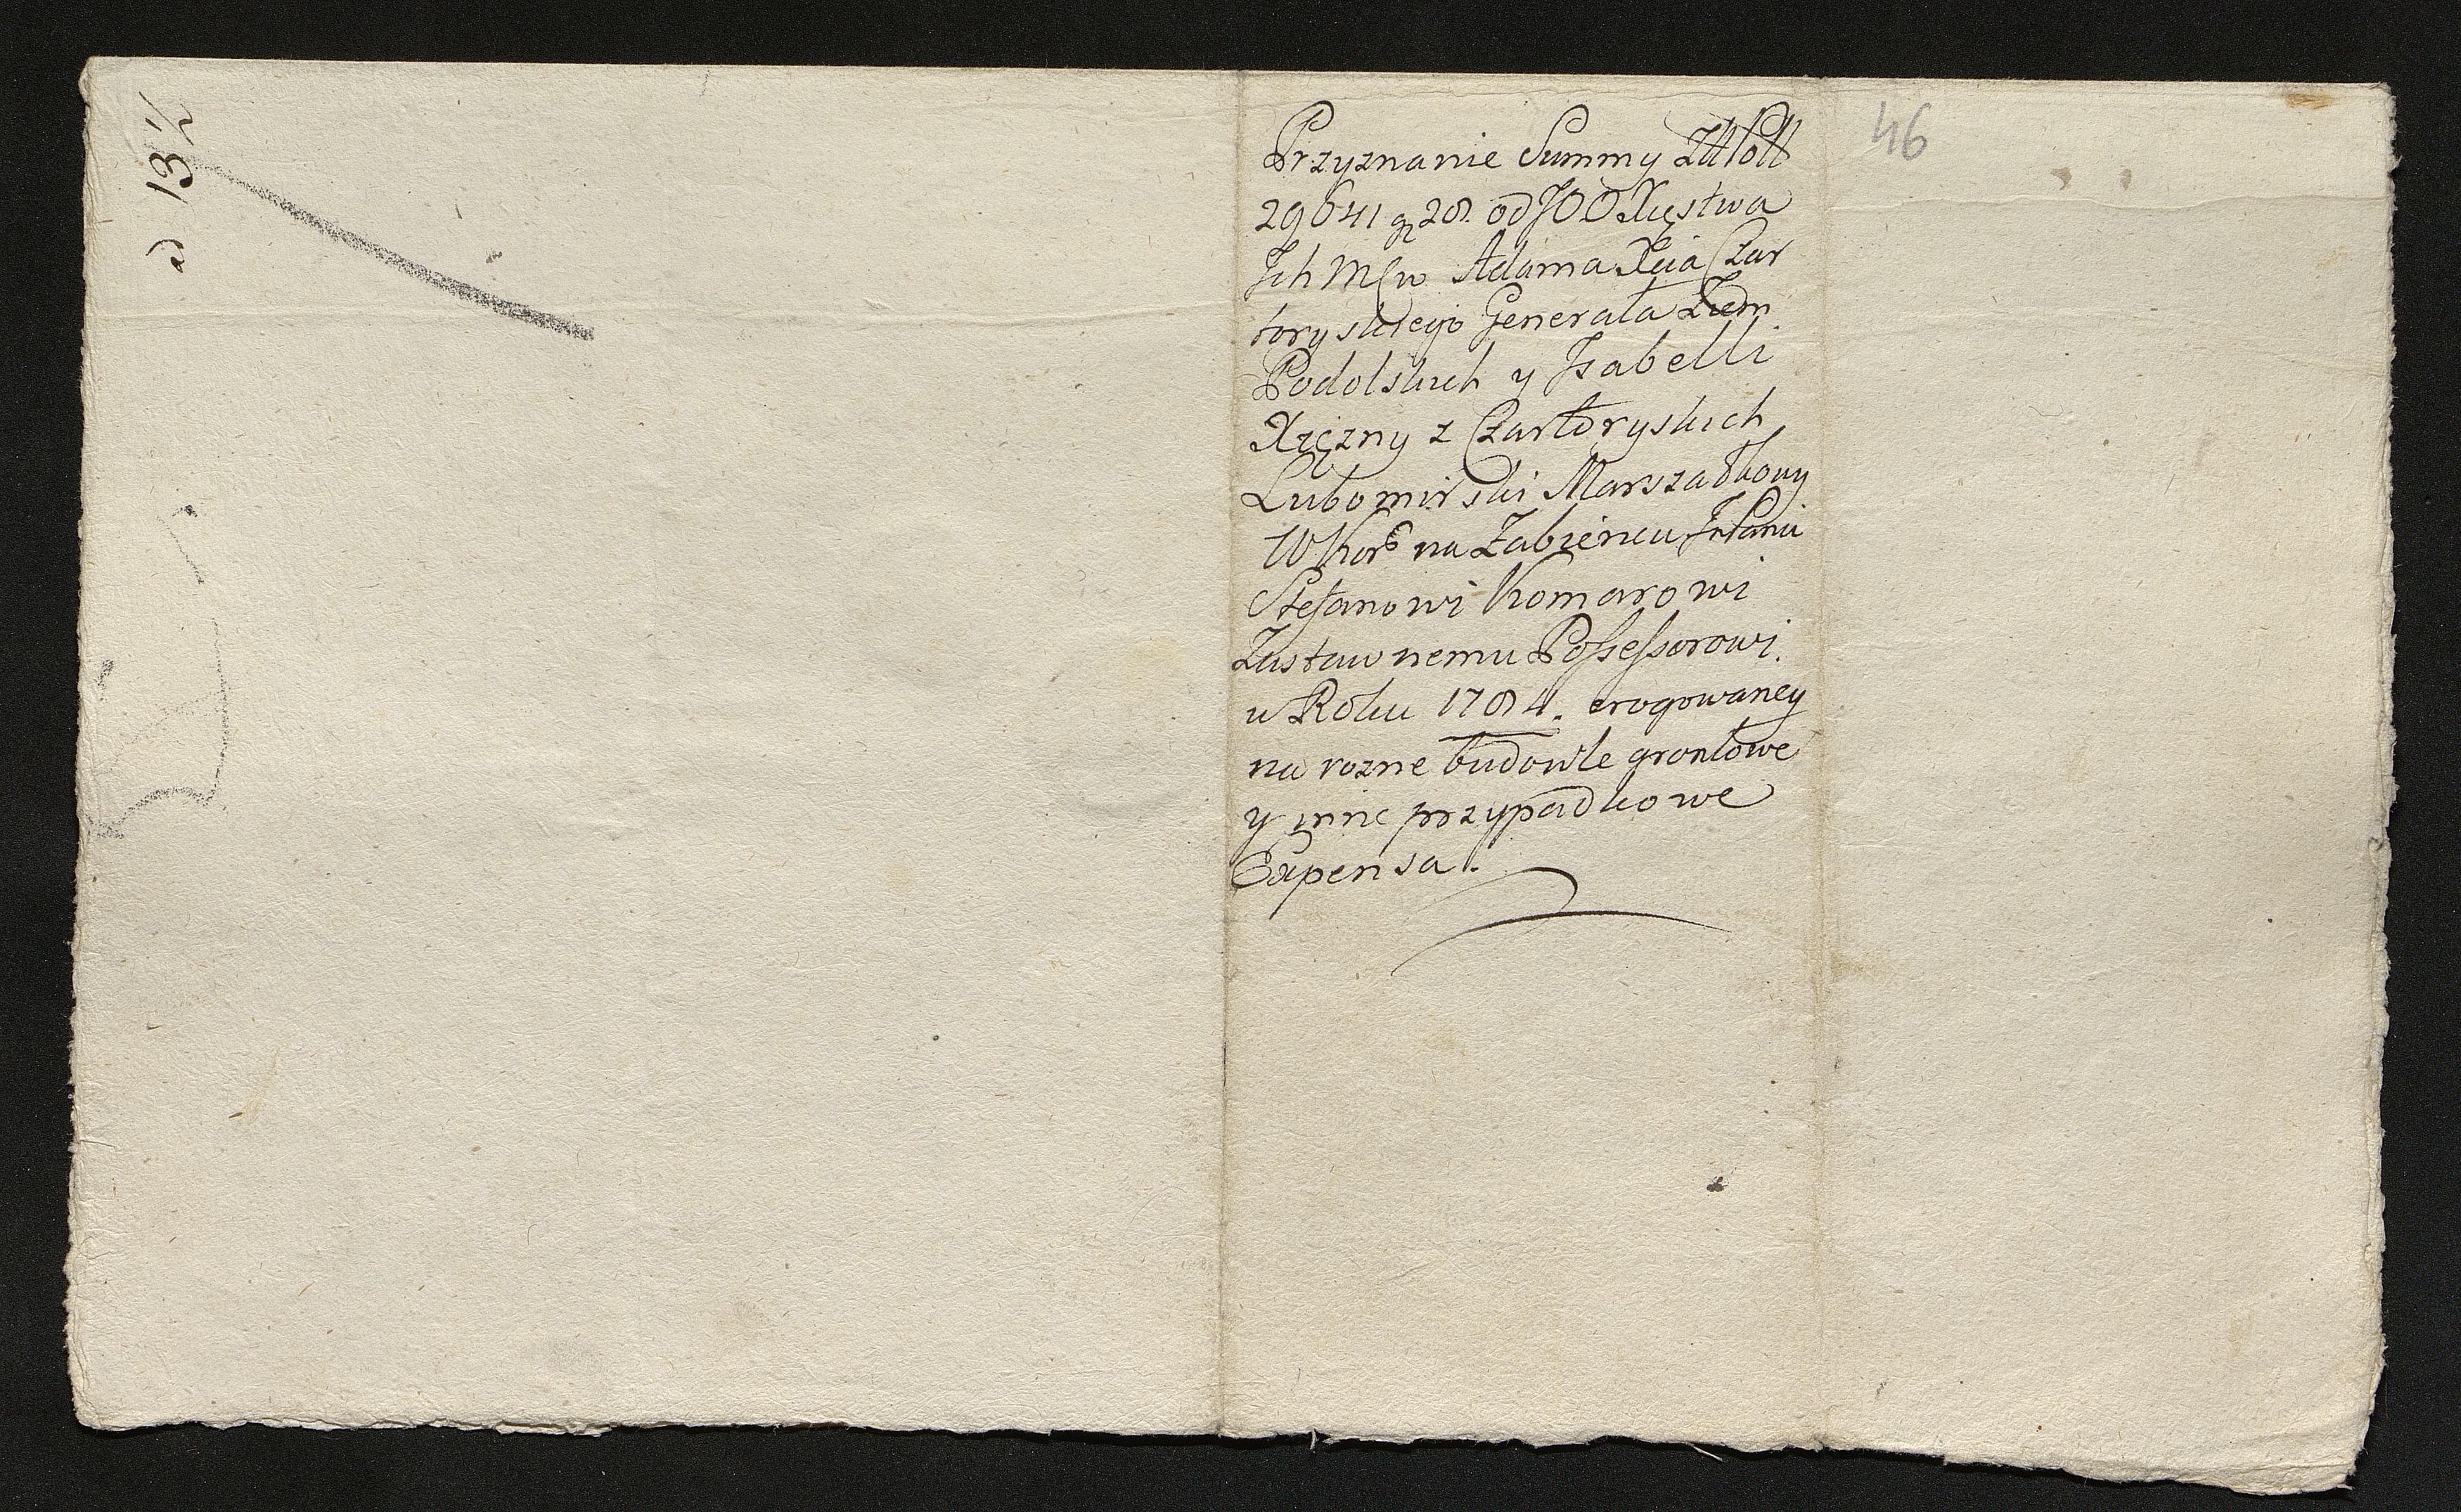 ad 13 1/2
46
Przyznanie Summy Zł Poll
29641 gr 28. od JOO Xięstwa
Ich Mścw Adama Xcia Czar
toryskiego Generała Ziem
Podolskich y Isabelli
Xiężny z Czartoryskich
Lubomirski Marszałkowy
W Kor na Zabiencu
Stefanowi Komarowi
Zastawnemu Possessorowi.
w Roku 1784. erogowaney
na rozne budowle grontowe
y inne przypadkowe
Expensa.